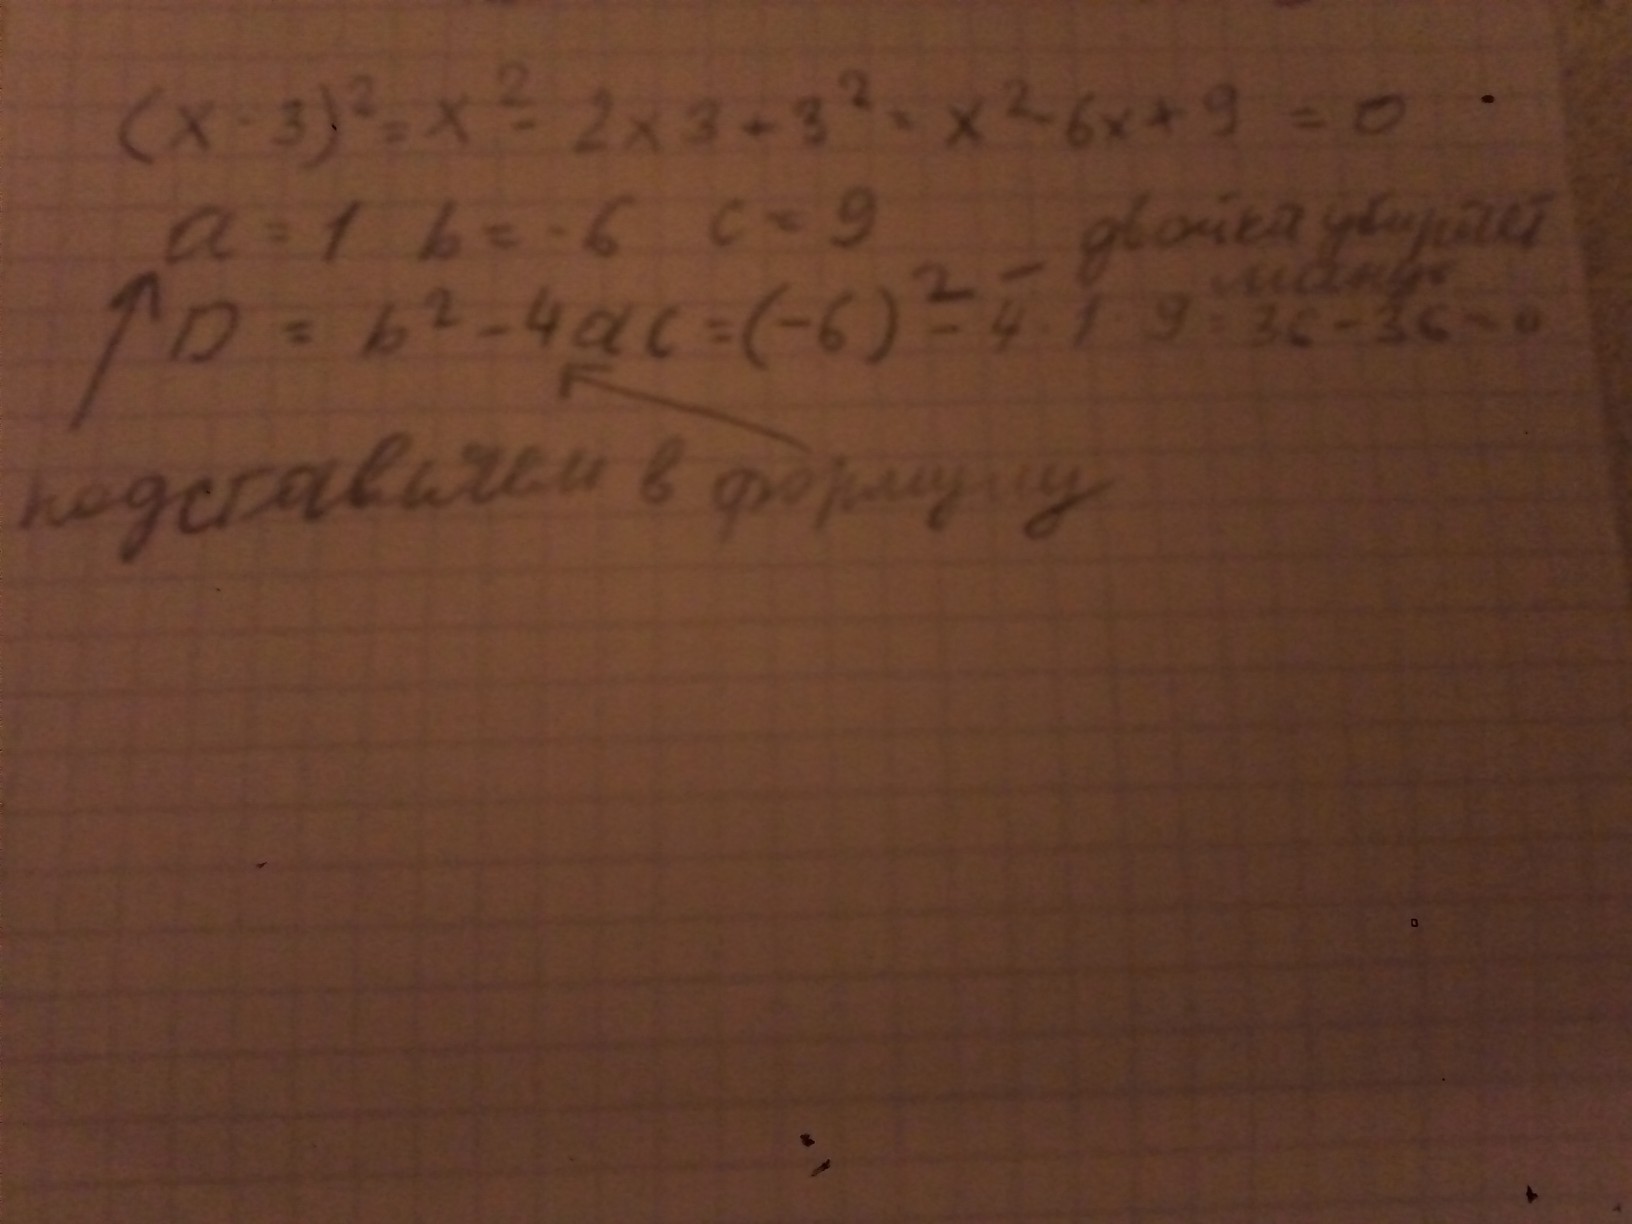 (x - 3)² = x² - 2x3 + 3² = x² - 6x + 9 = 0
a = 1 b = -6 c = 9
двойка убирает
минус
D = b² - 4ac = (-6)² - 4 · 1 · 9 = 36 - 36 = 0
подставляем в формулу